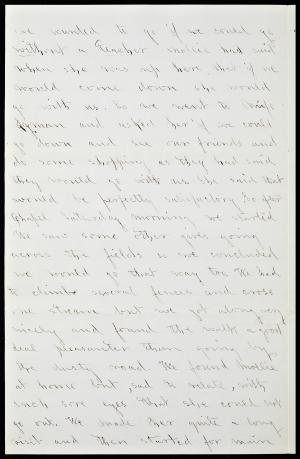 we wanted to go if we could go
without a teacher. Mollie had said
when she was up here, that if we
would come down she would
go with us. So we went to Miss
Lyman and asked her if we could
go down and see our friends and
do some shopping as they had said
they would go with us she said that
would be perfectly satisfactory. So after
chapel Saturday morning we started
We saw some other girls going
across the fields so we concluded
we would go that way too. We had
to climb several fences and cross
one stream but we got along very
nicely and found the walk a good
deal pleasanter than going by
the dusty road. We found Mollie
at home but, sad to relate, with
such sore eyes that she could not
go out. We made her quite a long
visit and then started for main